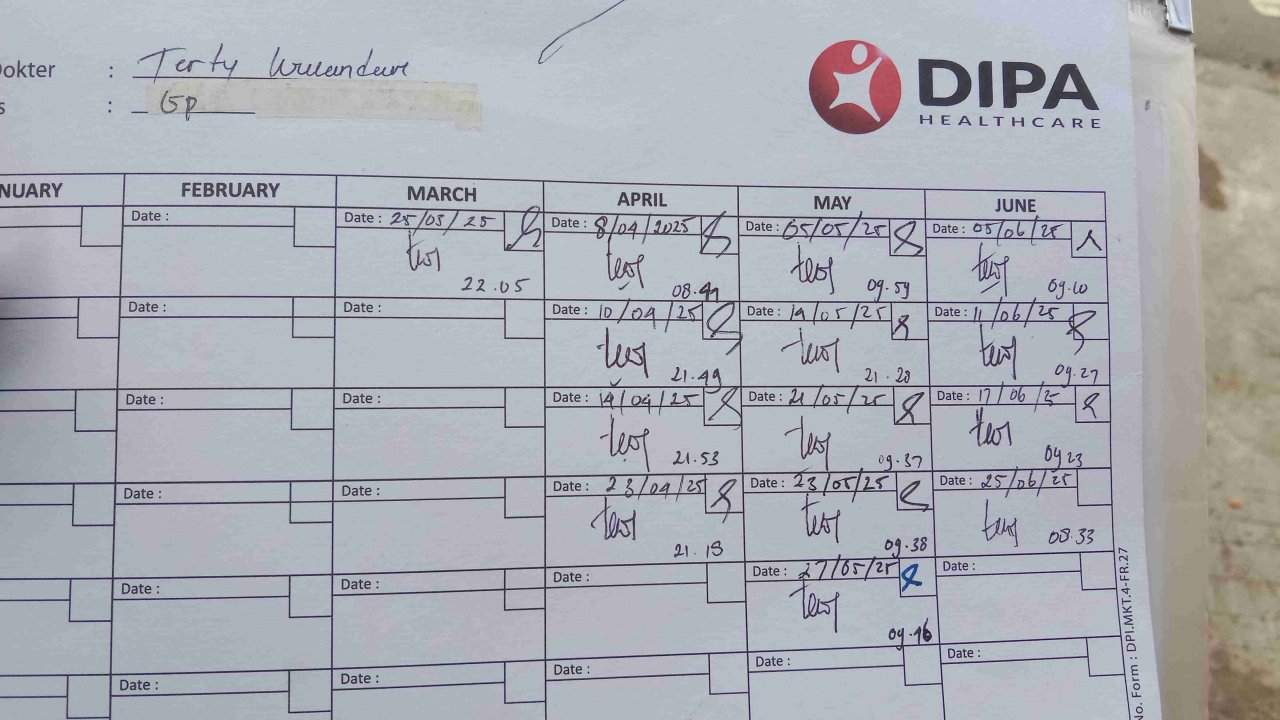 Dokter : Terty
s : Gp
DIPA
HEALTHCARE
NUARY FEBRUARY MARCH APRIL MAY JUNE
Date : Date : 25/03/25 Date : 8/04/2025 Date : 05/05/25 Date : 05/06/25
22.05 08.49 09.59 09.10
Date : Date : Date : 10/04/25 Date : 19/05/25 Date : 11/06/25
21.49 21.28 09.27
Date : Date : Date : 14/04/25 Date : 21/05/25 Date : 17/06/25
21.53 09.37 0923
Date : Date : Date : 23/04/25 Date : 23/05/25 Date : 25/06/25
21.18 09.38 08.33
Date : Date : Date : Date : 27/05/25 Date :
09.46
Date : Date : Date : Date : Date :
No. Form : DPI.MKT.4-FR.27